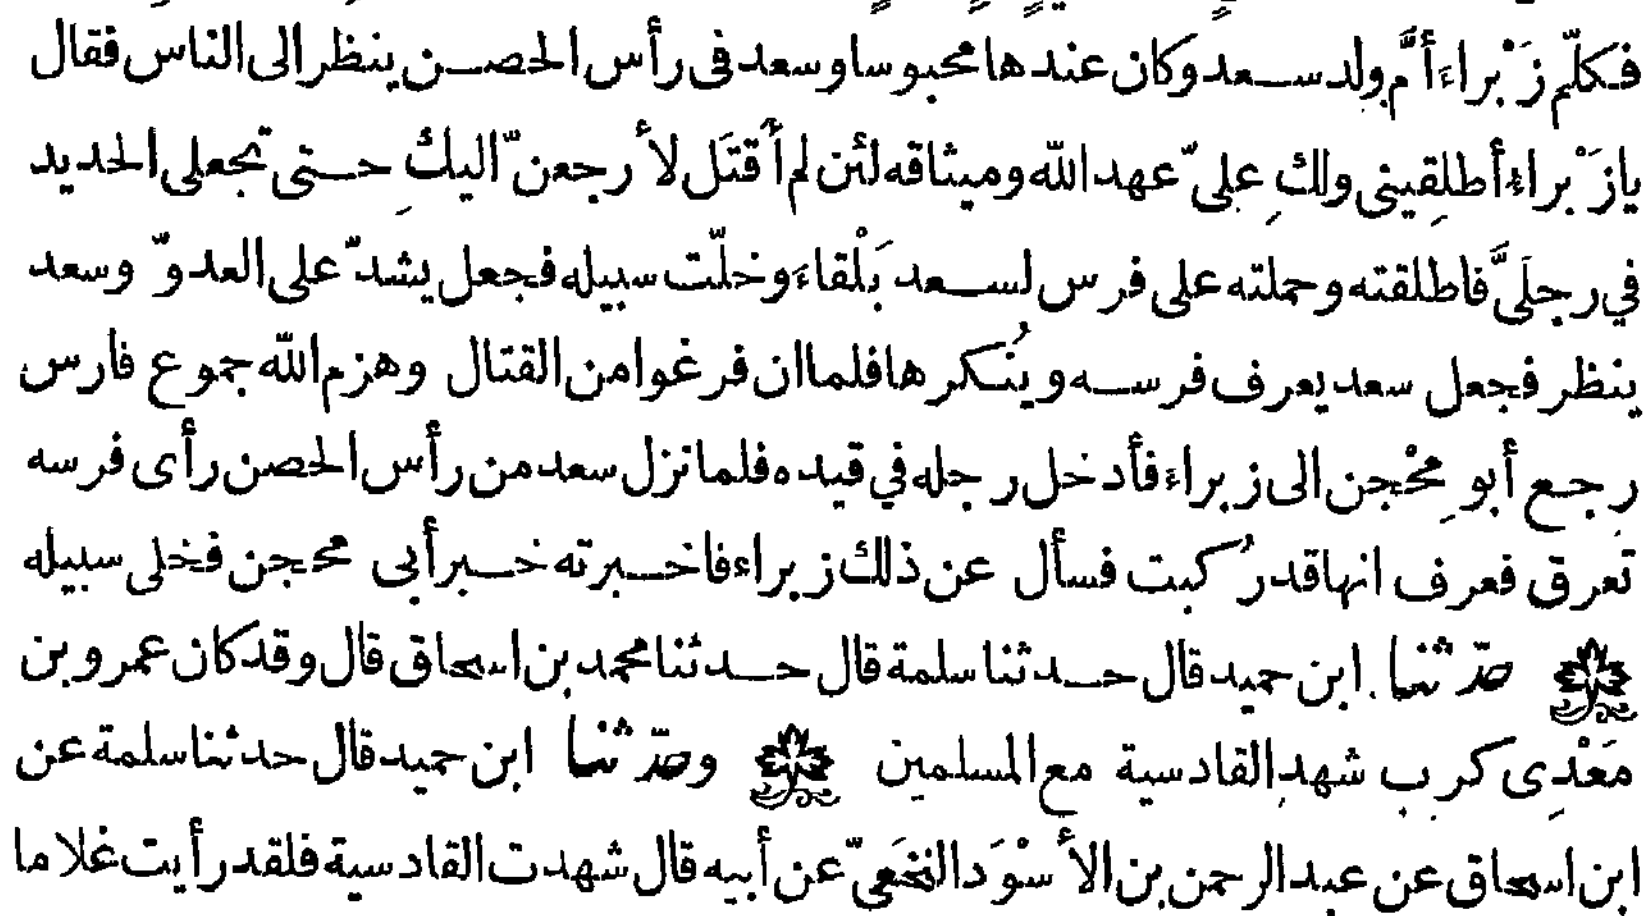 فكلّم زَبْراءَ أمَّ ولد سعد وكان عندها محبوسا وسعد فى رأس الحصن ينظر الى الناس فقال
يا زَبْراءُ أطلِقينى ولكِ علىّ عهد الله وميثاقه لئن لم أُقتَل لأرجعنّ اليكِ حتى تجعلى الحديد
في رجلَىَّ فاطلقته وحملته على فرس لسعد بَلْقاءَ وخلّت سبيله فجعل يشدّ على العدوّ وسعد
ينظر فجعل سعد يعرف فرسه ويُنكرها فلما ان فرغوا من القتال وهزم الله جموع فارس
رجع أبو مِحْجن الى زبراءَ فأدخل رجله في قيده فلما نزل سعد من رأس الحصن رأى فرسه
تعرق فعرف انها قد رُكبت فسأل عن ذلك زبراء فاخبرته خبر أبى محجن فخلى سبيله
حدّثنا ابن حميد قال حدثنا سلمة قال حدثنا محمد بن اسحاق قال وقد كان عمرو بن
مَعْدِى كرب شهد القادسية مع المسلمين وحدّثنا ابن حميد قال حدثنا سلمة عن
ابن اسحاق عن عبد الرحمن بن الأسْوَد النخَعىّ عن أبيه قال شهدت القادسية فلقد رأيت غلاما